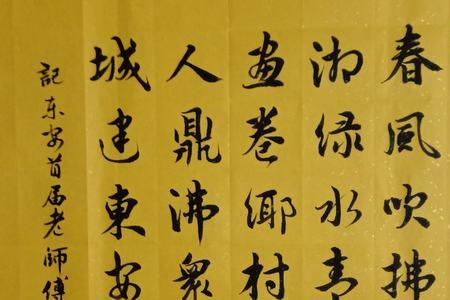 春風吹拂
湘绿水青
畫卷鄉村
人鼎沸眾
城建東安
記东安首届老師傅